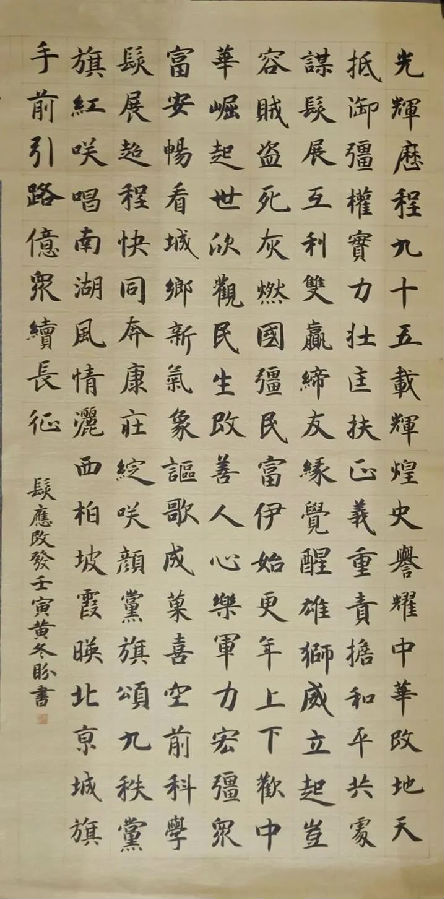 光輝歷程九十五載輝煌史譽耀中華改地天
抵御彊權實力壯匡扶正義重責擔和平共處
謀髮展互利雙贏締友緣覺醒雄獅威立起豈
容賊盗死灰燃國彊民富伊始更年上下歡中
華崛起世欣觀民生改善人心樂軍力宏彊眾
富安暢看城鄉新氣象謳歌成菓喜空前科學
髮展超程快同奔康莊綻咲顏黨旗頌九秩黨
旗紅咲唱南湖風情灑西柏坡霞暎北亰城旗
手前引路億眾續長征
髮應改發壬寅黄冬盼書